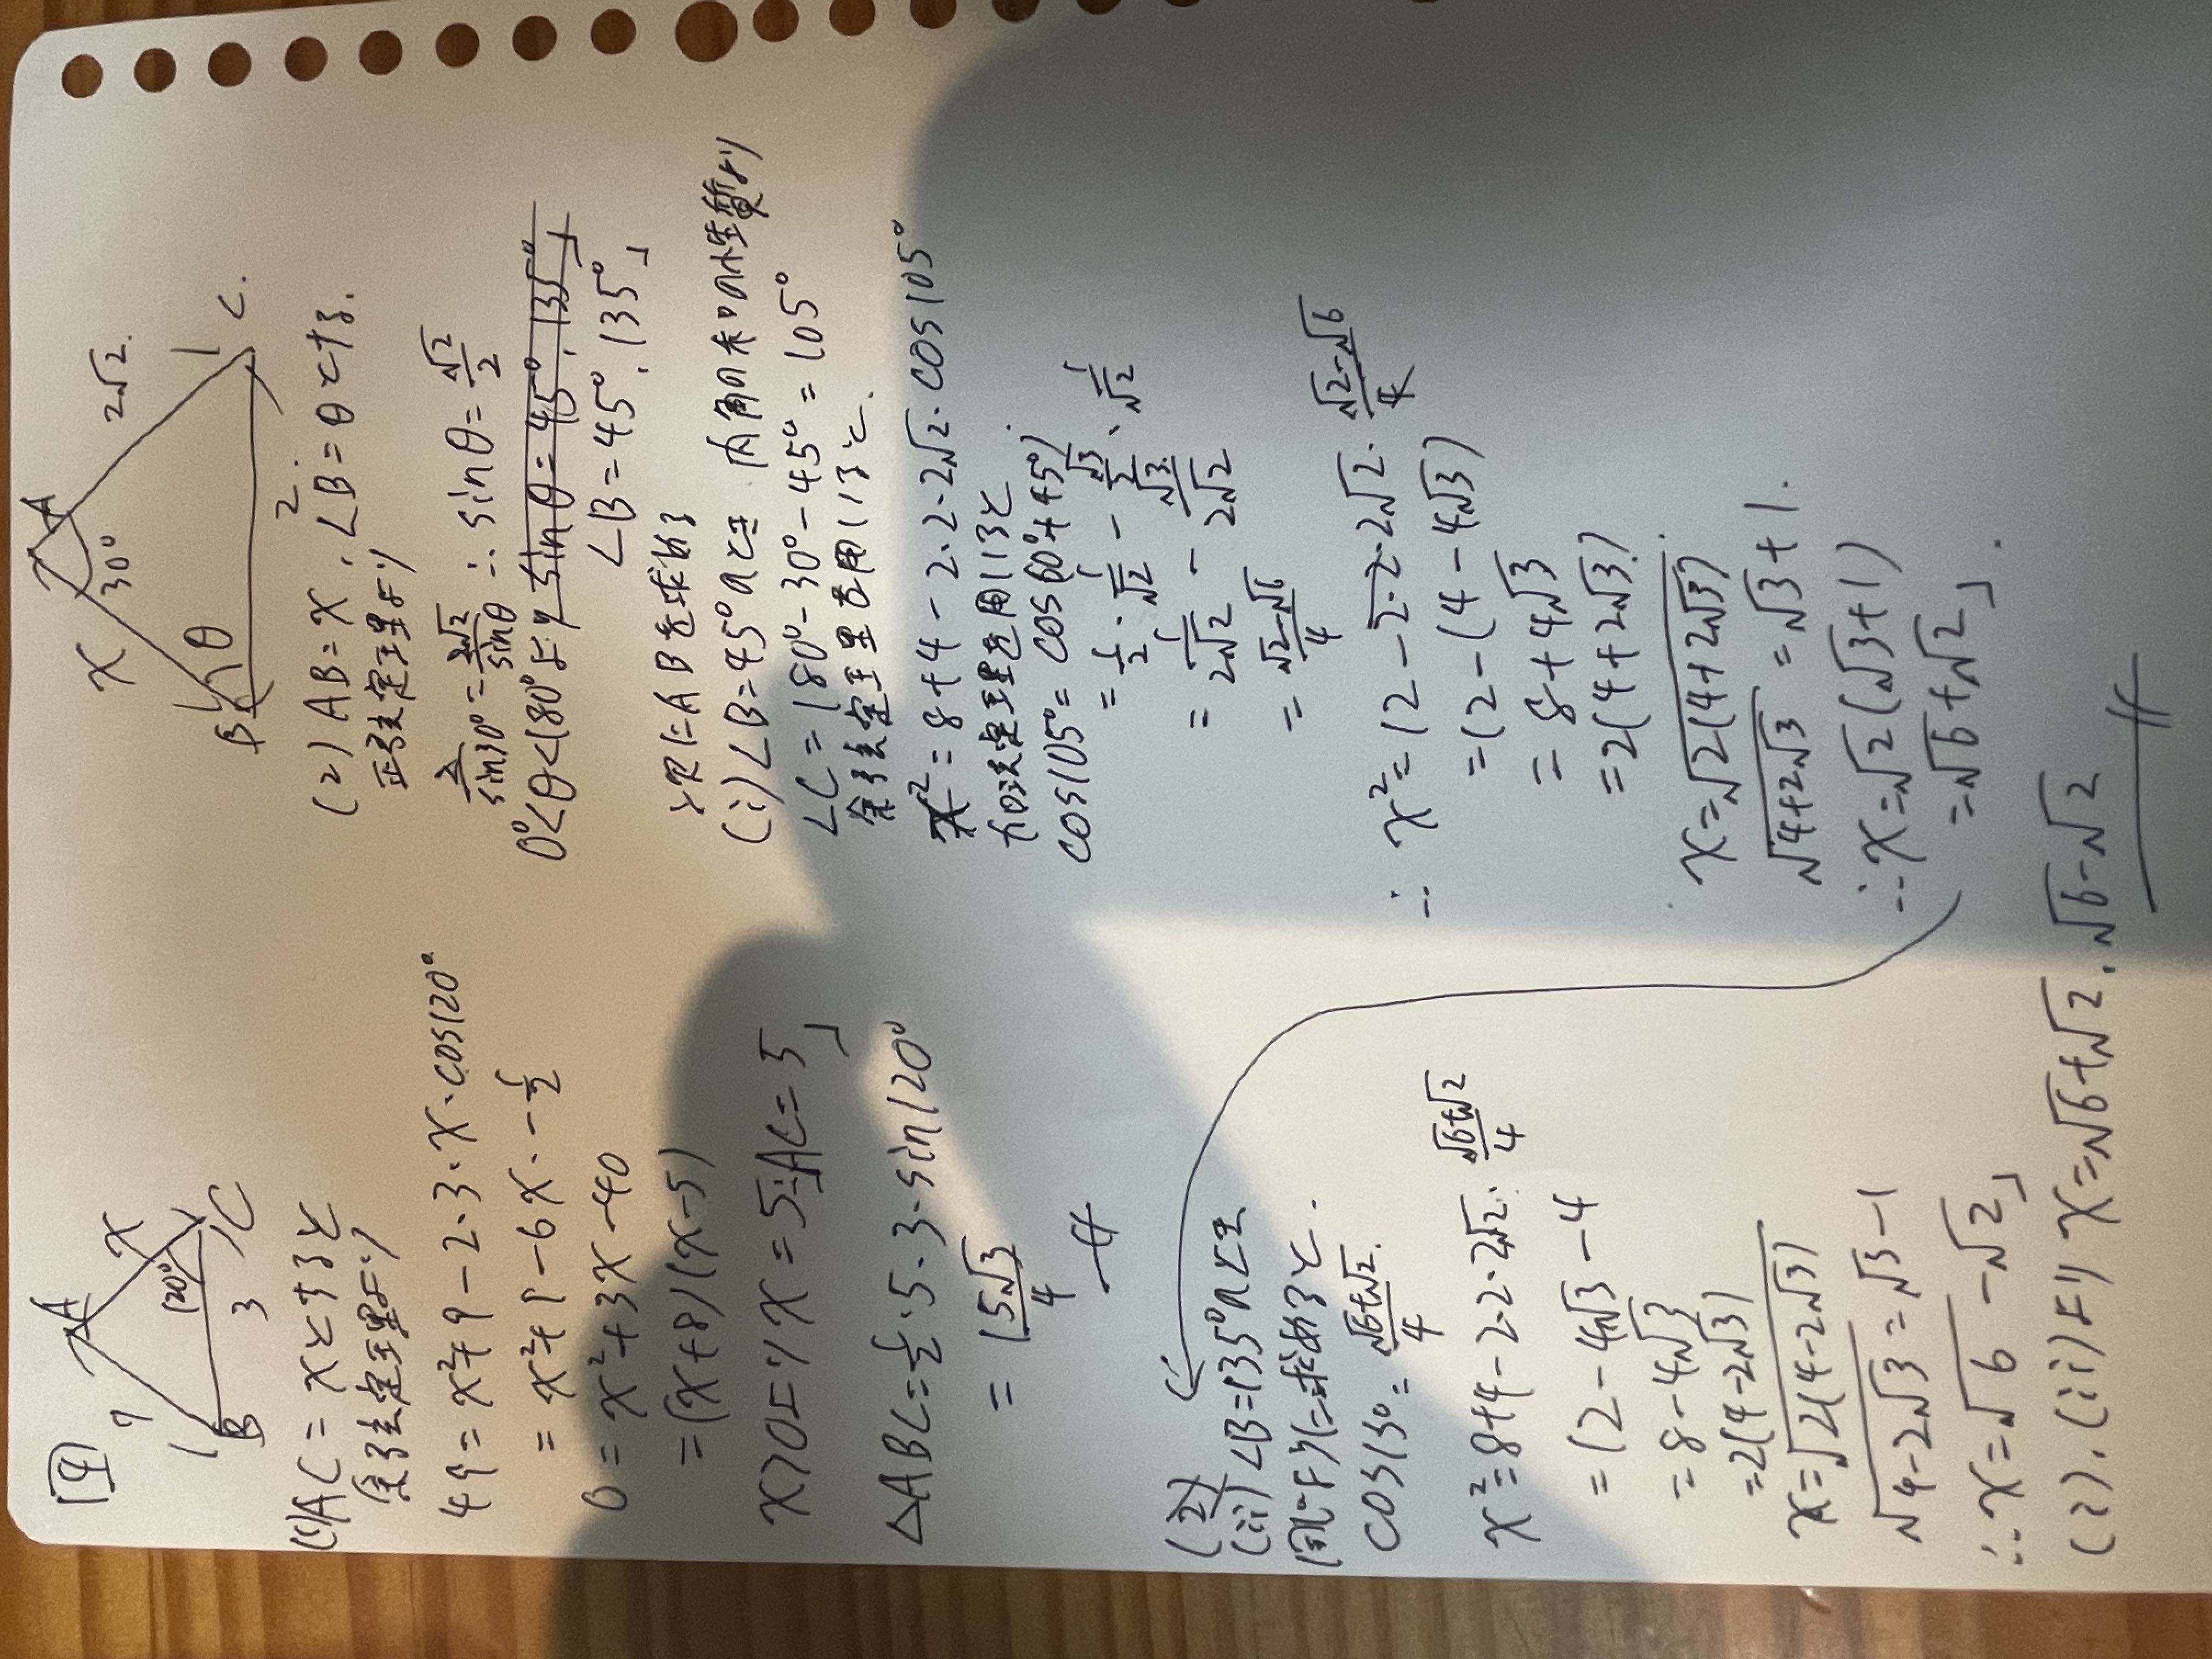 [9]
7 A x
120°
B 3 C
(1) AC = xとすると
余弦定理より
49 = x²+9-2・3・x・cos120°
= x²+9-6x・-1/2
0 = x²+3x-40
= (x+8)(x-5)
x>0より x=5∴AC=5」
△ABC=1/2・5・3・sin120°
= 15√3/4
x A 2√2.
30°
B θ 2. C.
(2) AB=x, ∠B=θとする.
正弦定理より
2/sin30° = 2√2/sinθ ∴ sinθ=√2/2
0°<θ<180°より sinθ=45°, 135°」
∠B=45°, 135°」
次にABを求める
(i) ∠B=45°のとき 内角の和の性質より
∠C=180°-30°-45°=105°
余弦定理を用いると.
x²=8+4-2・2・2√2・cos105°
加法定理を用いると.
cos105°=cos(60°+45°)
= 1/2・1/√2 - √3/2・1/√2
= 1/2√2 - √3/2√2
= √2-√6/4
∴ x²=12-2・2・2√2・√2-√6/4
=12-(4-4√3)
= 8+4√3
=2(4+2√3)
x=√2(4+2√3).
√4+2√3=√3+1.
∴x=√2(√3+1)
=√6+√2」.
(2)
(ii) ∠B=135°のとき
同じように求めると.
cos15°= √6+√2/4.
x²=8+4-2・2・2√2・√6+√2/4
=12-4√3-4
=8-4√3
=2(4-2√3)
x=√2(4-2√3)
√4-2√3=√3-1
∴x=√6-√2」
(i),(ii)より x=√6+√2, √6-√2